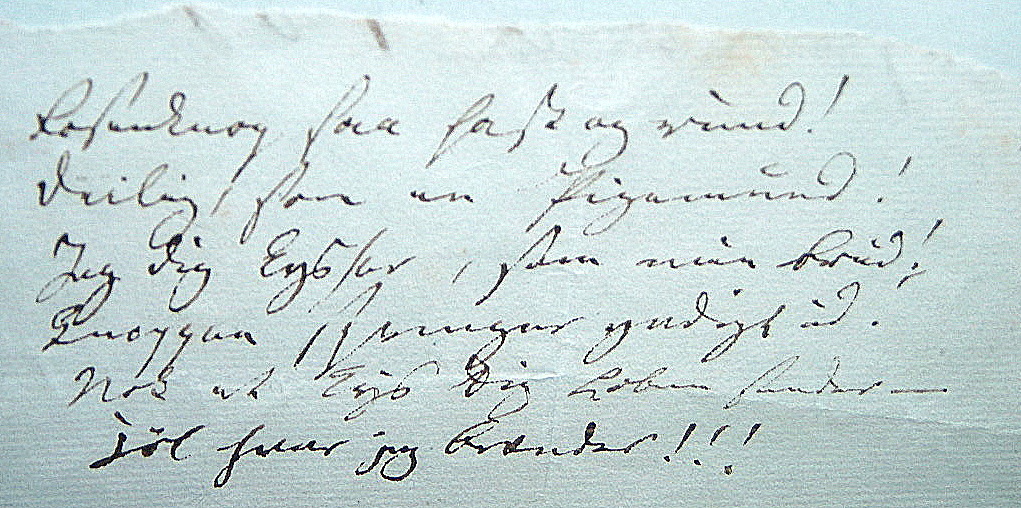 Rosenknop saa fast og rund!
Deilig, som en Pigemund!
Jeg dig kysser, som min Brud!
Knoppen springer yndigt ud.
Nok et Kys Dig Læben sender —
Føl hvor jeg brænder!!!